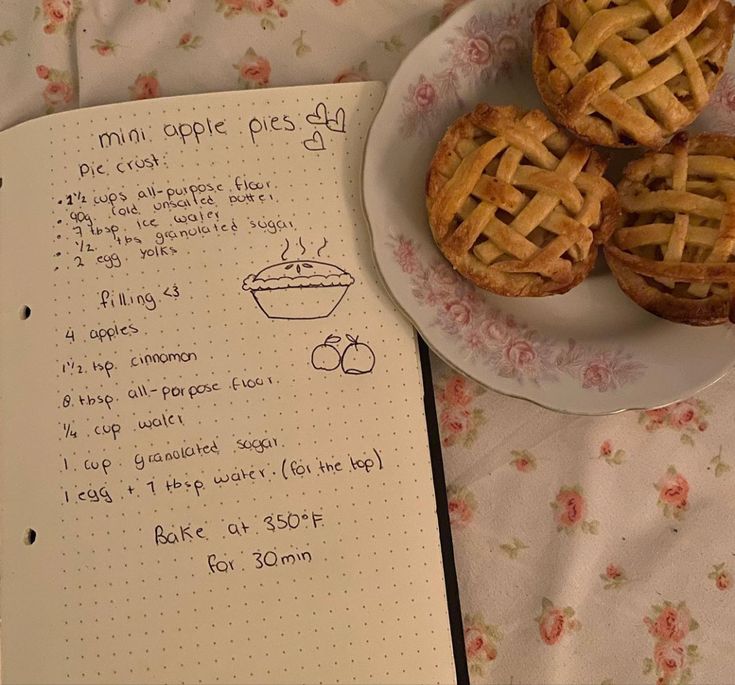 mini apple pies
pie crust:
• 2 1/2 cups all-purpose floor
• 90g cold unsalted butter
• 7 tbsp ice water
• 1/2 tbs granulated sugar
• 2 egg yolks
filling <3
4 apples
1 1/2 tsp cinnamon
8 tbsp all-porpose floor
1/4 cup water
1 cup granolated sogar
1 egg + 1 tbsp water (for the top)
Bake at 350°F
for 30min